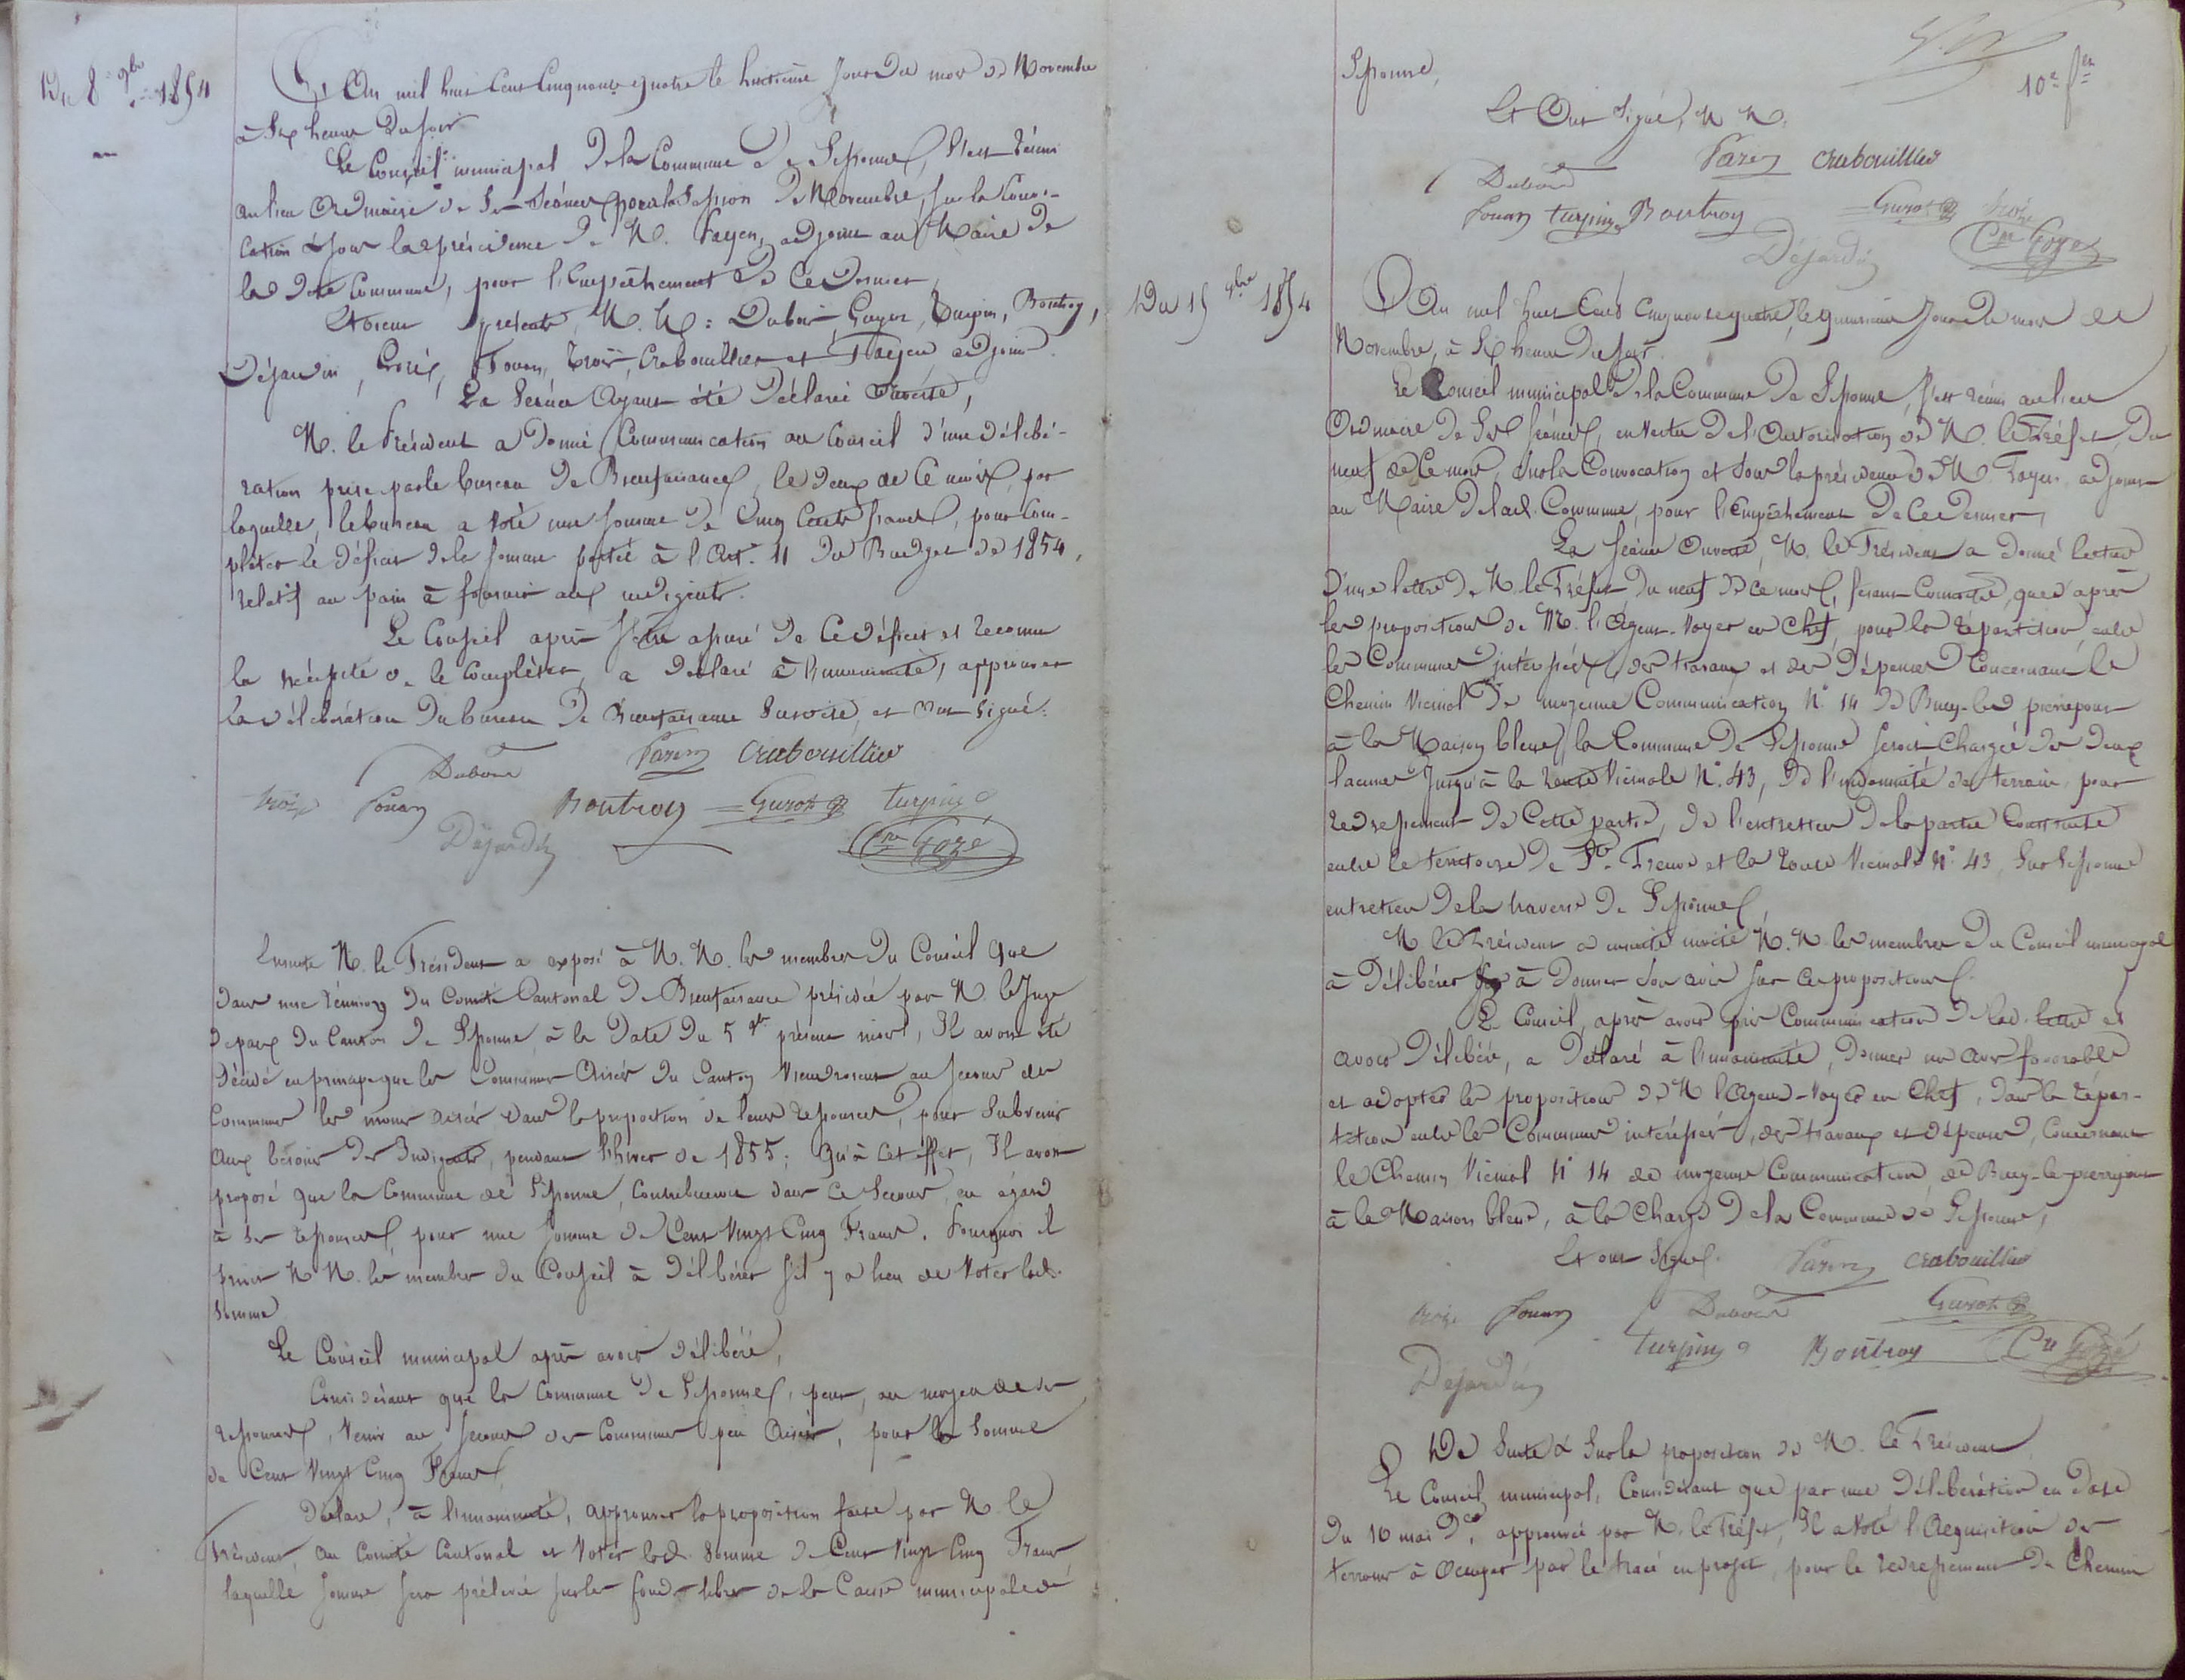 Du 8 9bre 1854
L'An mil huit Cent Cinquante quatre le huitieme Jour du mois de Novembre
à Six heures Du soir
Le Conseil municipal de la Commune de Sissonne, s'est réuni
au lieu Ordinaire de ses Séances pour la Session de Novembre, sur la Convo-
cation & sous la présidence de M. Payen, adjoint au Maire de
la dite Commune, pour l'Empêchement de Ce Dernier,
Etaient présents, M. M. : Dubois, Guyot, Turpin, Boutroy,
Déjardin, Gozé, Fouan, Croix, Crabouillier et Payen adjoint.
La Séance Ayant été Déclarée Ouverte,
M. le Président a Donné Communication au Conseil d'une délibé-
ration prise par le bureau de Bienfaisance, le deux de Ce mois, par
laquelle, le bureau a voté une somme de Cinq Cents francs, pour Com-
pléter le déficit de la somme portée à l'Art. 11 du Budget de 1854,
relatif au pain à fournir aux indigents.
Le Conseil après s'être assuré de Ce déficit et reconnu
la nécessité de le Compléter, a déclaré à l'unanimité, approuver
la délibération du bureau de Bienfaisance Susvisée, et ont signé.
Payen Crabouillier
Dubois
Fouan Boutroy Guyot turpin
Déjardin Gozé
Ensuite M. le Président a exposé à M. M. les membres du Conseil que
dans une réunion du Comité Cantonal de Bienfaisance présidée par M. le Juge
de paix du Canton de Sissonne, à la date du 5 9bre présent mois, Il avait été
décidé en principe que les Communes Aisées du Canton viendraient au secours des
Communes les moins aisées dans la proportion de leurs ressources, pour Subvenir
aux besoins des Indigents, pendant l'hiver de 1855 ; Qu'à cet effet, Il avait
proposé que la Commune de Sissonne, Contribuerait dans Ce Secours, eu égard
à ses ressources, pour une somme de Cent Vingt Cinq Francs. Pourquoi il
invite M M. les membres du Conseil à Délibérer s'il y a lieu de Voter lad.
Somme
Le Conseil municipal après avoir délibéré,
Considérant que la Commune de Sissonne, peut, au moyen de ses
ressources, Venir au secours des Communes peu Aisées, pour la Somme
de Cent Vingt Cinq Francs
Déclare, à l'unanimité, approuver la proposition faite par M. le
Président, au Comité Cantonal et Voter lad. Somme de Cent Vingt Cinq Francs
laquelle somme sera prélevée sur les fonds libres de la Caisse municipale de
10e fet
Sissonne,
Et Ont Signé, M M.
Payen Crabouillier
Dubois
Fouan turpin Boutroy Guyot
Déjardin Gozé
Du 15 9bre 1854
L'An mil huit Cent Cinquante quatre, le quinzieme Jour du mois de
Novembre, à Six heures Du soir.
Le Conseil municipal de la Commune de Sissonne, s'est réuni au lieu
Ordinaire de Ses séances, en Vertu de l'Autorisation de M. le Préfet, du
neuf de Ce mois, Sur la Convocation et Sous la présidence de M. Payen adjoint
au Maire de lad. Commune, pour l'Empêchement de Ce dernier,
La Séance Ouverte, M. le Président a donné lecture
d'une lettre de M. le Préfet du neuf de ce mois, faisant Connaître, que d'après
les propositions de M. l'Agent-Voyer en Chef, pour la répartition, entre
les Communes intéressées, des travaux et des dépenses Concernant le
Chemin Vicinal de moyenne Communication N° 14 de Bucy-les pierrepont
à la Maison bleue, la Commune de Sissonne serait Chargée des deux
lacunes Jusqu'à la route Vicinale N° 43, de l'indemnité de terrain pour
redressement de Cette partie, de l'entretien de la partie Construite
entre le territoire de Ste Preuve et la route Vicinale N° 43, Sur Sissonne
entretien de la traverse de Sissonne,
M le Président a ensuite invité M. M. les membres du Conseil municipal
à délibérer à Donner Son avis sur Ces propositions.
Le Conseil, après avoir pris Communication de lad. lettre et
avoir Délibéré, a Déclaré à l'unanimité, donner un avis favorable
et adopter les propositions de M l'Agent-Voyer en Chef, dans la répar-
tition entre les Communes intéressées, des travaux et dépenses, Concernant
le Chemin Vicinal N° 14 de moyenne Communication de Bucy-les-pierrepont
à la Maison bleue, à la Charge de la Commune de Sissonne,
Et ont Signé.
Payen Crabouillier
Fouan Dubois Guyot
turpin Boutroy Gozé
Dejardin
De Suite & Sur la proposition de M. le Président
Le Conseil municipal, Considérant que par une délibération en date
du 16 mai der, approuvée par M. le Préfet, Il a Voté l'Acquisition des
terrains à Occuper par le tracé en projet, pour le redressement du Chemin